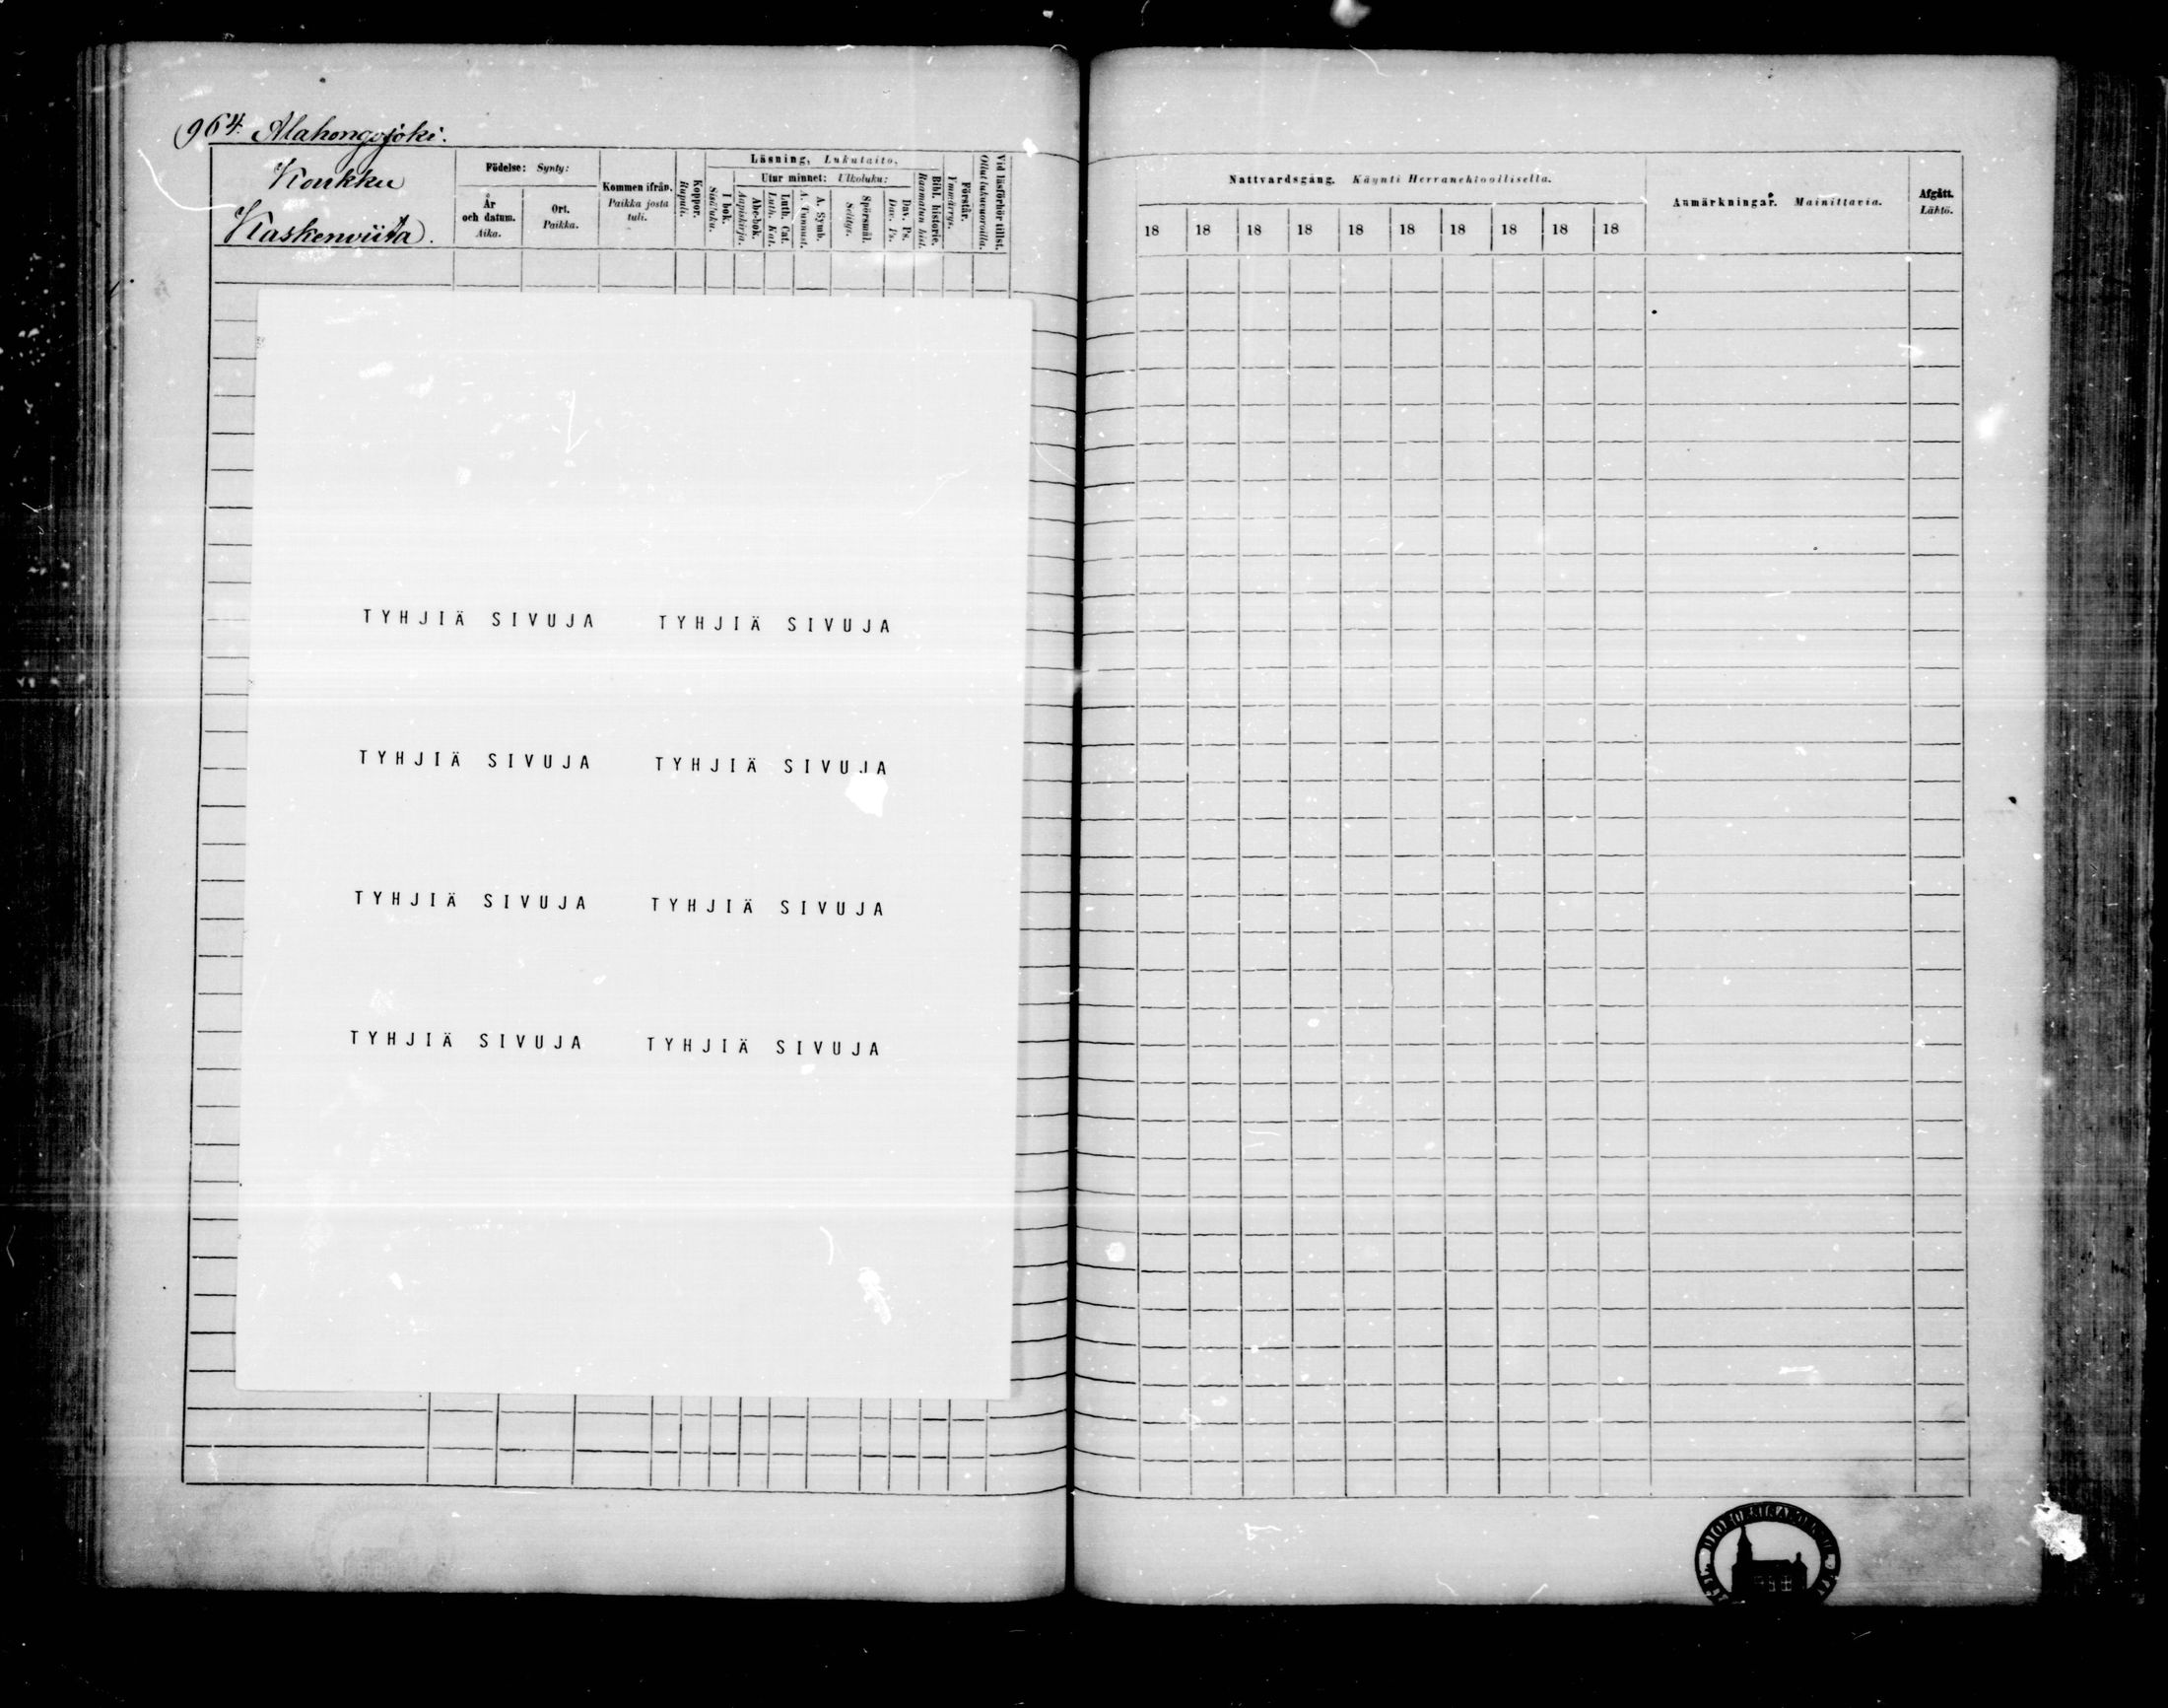 964. Alahongojoki.
Koukku
Kaskenviita.
Födelse: Synty:
År och datum. Aika.
Ort. Paikka.
Kommen ifrån. Paikka josta tuli.
Koppor. Rupuli.
Läsning, Lukutaito,
I bok. Sisäluku.
Utur minnet: Ulkoluku:
Abc-bok. Aapiskirja.
Luth. Cat. Luth. Kat.
A. Symb. A. Tunnust.
Spörsmål. Selitys.
Dav. Ps. Dav. Ps.
Bibl. historie. Raamatun hist.
Förstår. Ymmärrys.
Vid läsförhör tillst. Ollut lukuvuoroilla.
TYHJIÄ SIVUJA TYHJIÄ SIVUJA
TYHJIÄ SIVUJA TYHJIÄ SIVUJA
TYHJIÄ SIVUJA TYHJIÄ SIVUJA
TYHJIÄ SIVUJA TYHJIÄ SIVUJA
Nattvardsgång. Käynti Herranehtoollisella.
18 18 18 18 18 18 18 18 18 18
Anmärkningar. Mainittavia.
Afgått. Lähtö.